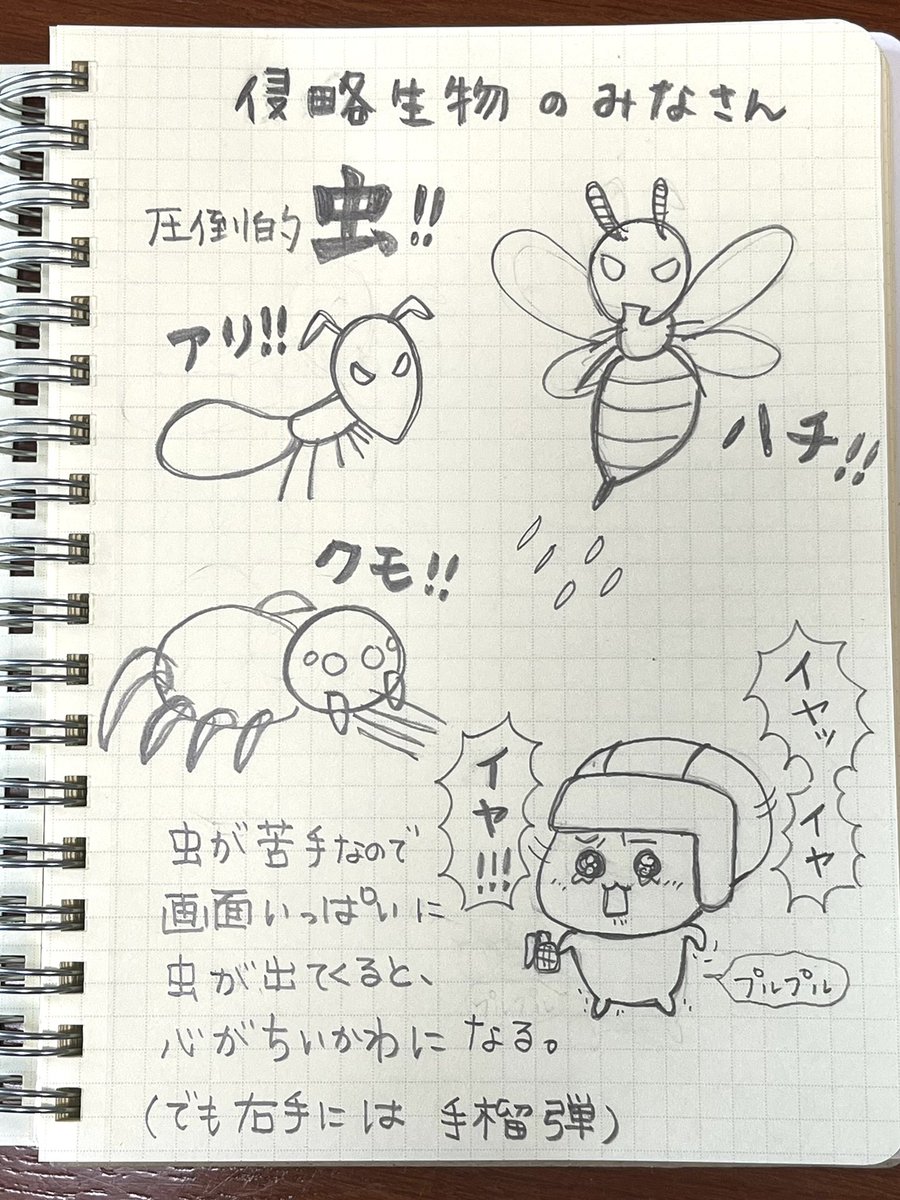 侵略生物のみなさん
圧倒的虫!!
アリ!!
ハチ!!
クモ!!
イヤッ
イヤ
イヤ!!!
プルプル
虫が苦手なので
画面いっぱいに
虫が出てくると、
心がちいかわになる。
(でも右手には 手榴弾)